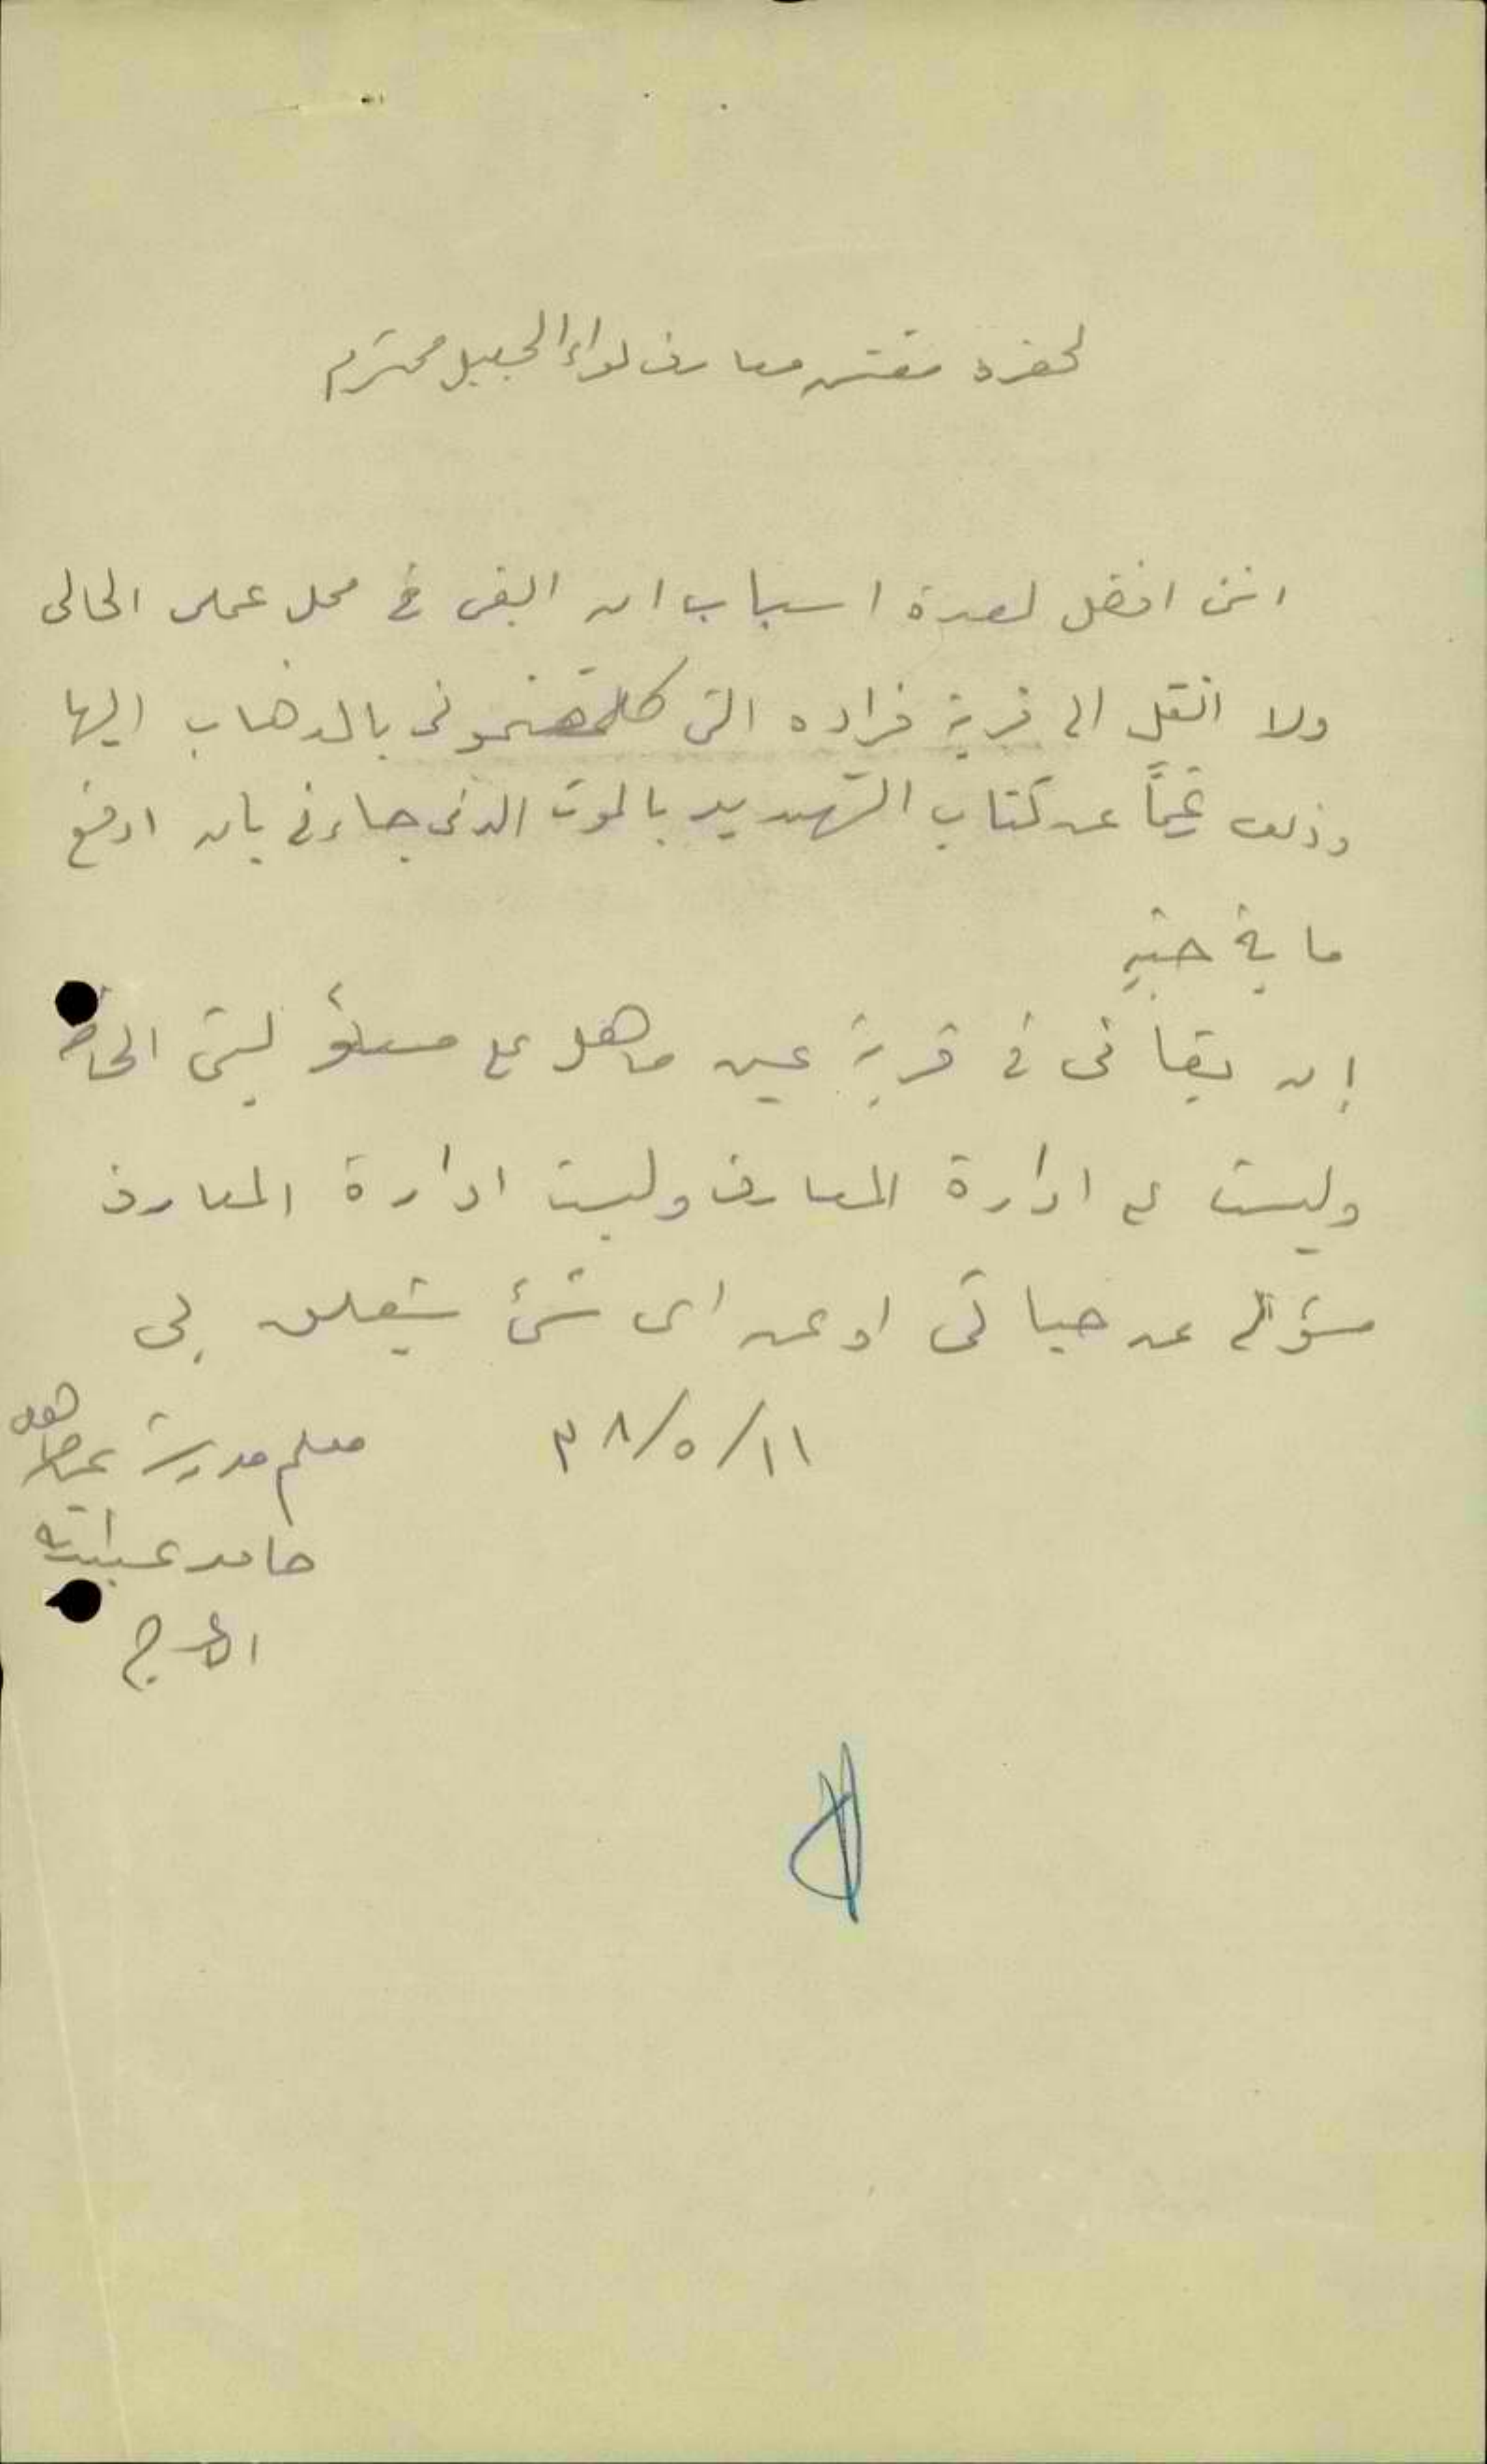 لحضرة مفتش معارف لواء الجليل المحترم
انني افضل لعدة اسباب ان ابقى في محل عملي الحالي
ولا انتقل الى قرية فراده التي كلفتموني بالذهاب اليها
وذلك رغماً عن كتاب التهديد بالموت الذي جاءني بان ادفع
ماية جنيه
إن بقائي في قرية عين ماهل على مسؤليتي الخاصة
وليست على ادارة المعارف وليست ادارة المعارف
مسؤله عن حياتي او عن اي شئ يتعلق بي
١١/٥/٣٨
معلم مدرسة عين ماهل
حامد عبدالله
الاعرج